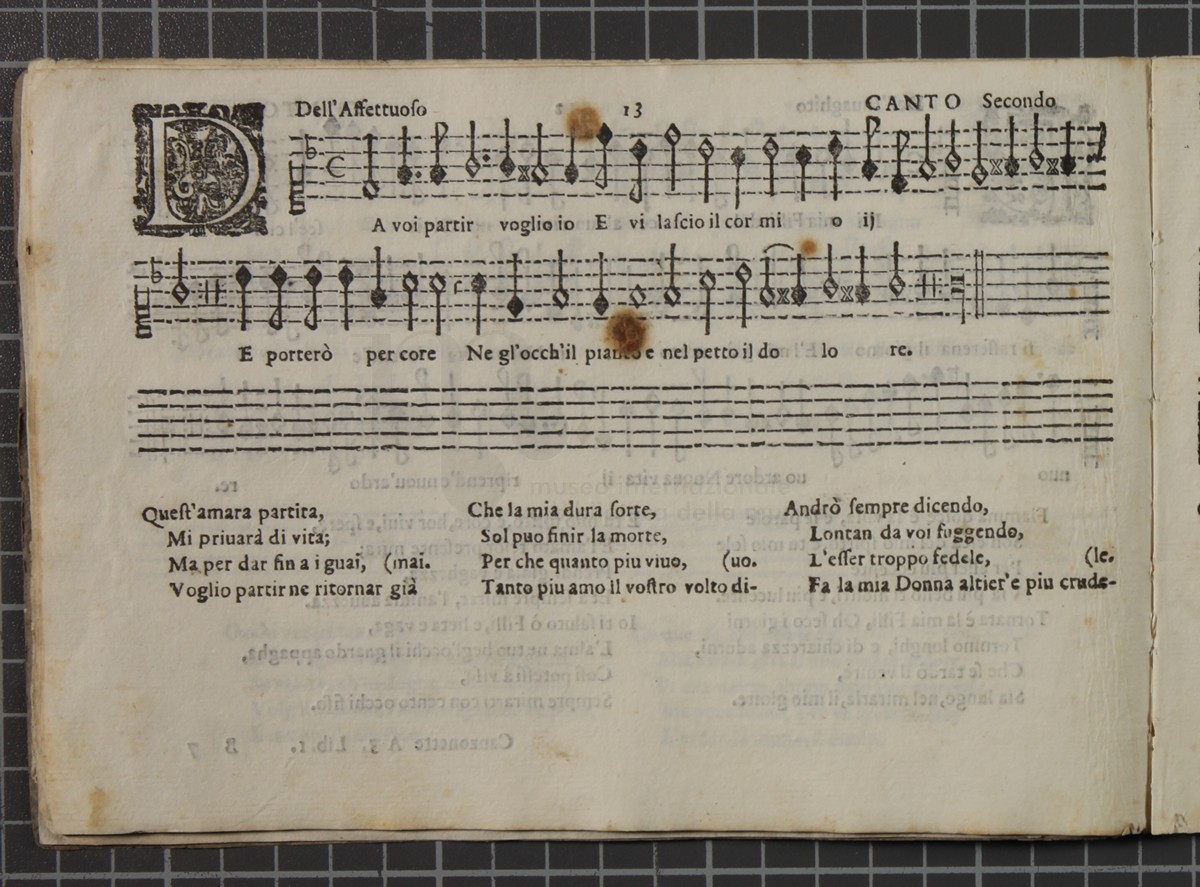 Dell'Affettuoso 13 CANTO Secondo
DA voi partir voglio io E vi lascio il cor mi o ij
E porterò per core Ne gl'occh'il pianto e nel petto il do lo re.
Quest'amara partita,
Mi priuarà di vita;
Ma per dar fin a i guai, (mai.
Voglio partir ne ritornar già
Che la mia dura sorte,
Sol puo finir la morte,
Per che quanto piu viuo, (uo.
Tanto piu amo il vostro volto di-
Andrò sempre dicendo,
Lontan da voi fuggendo,
L'esser troppo fedele, (le.
Fa la mia Donna altier'e piu crude-